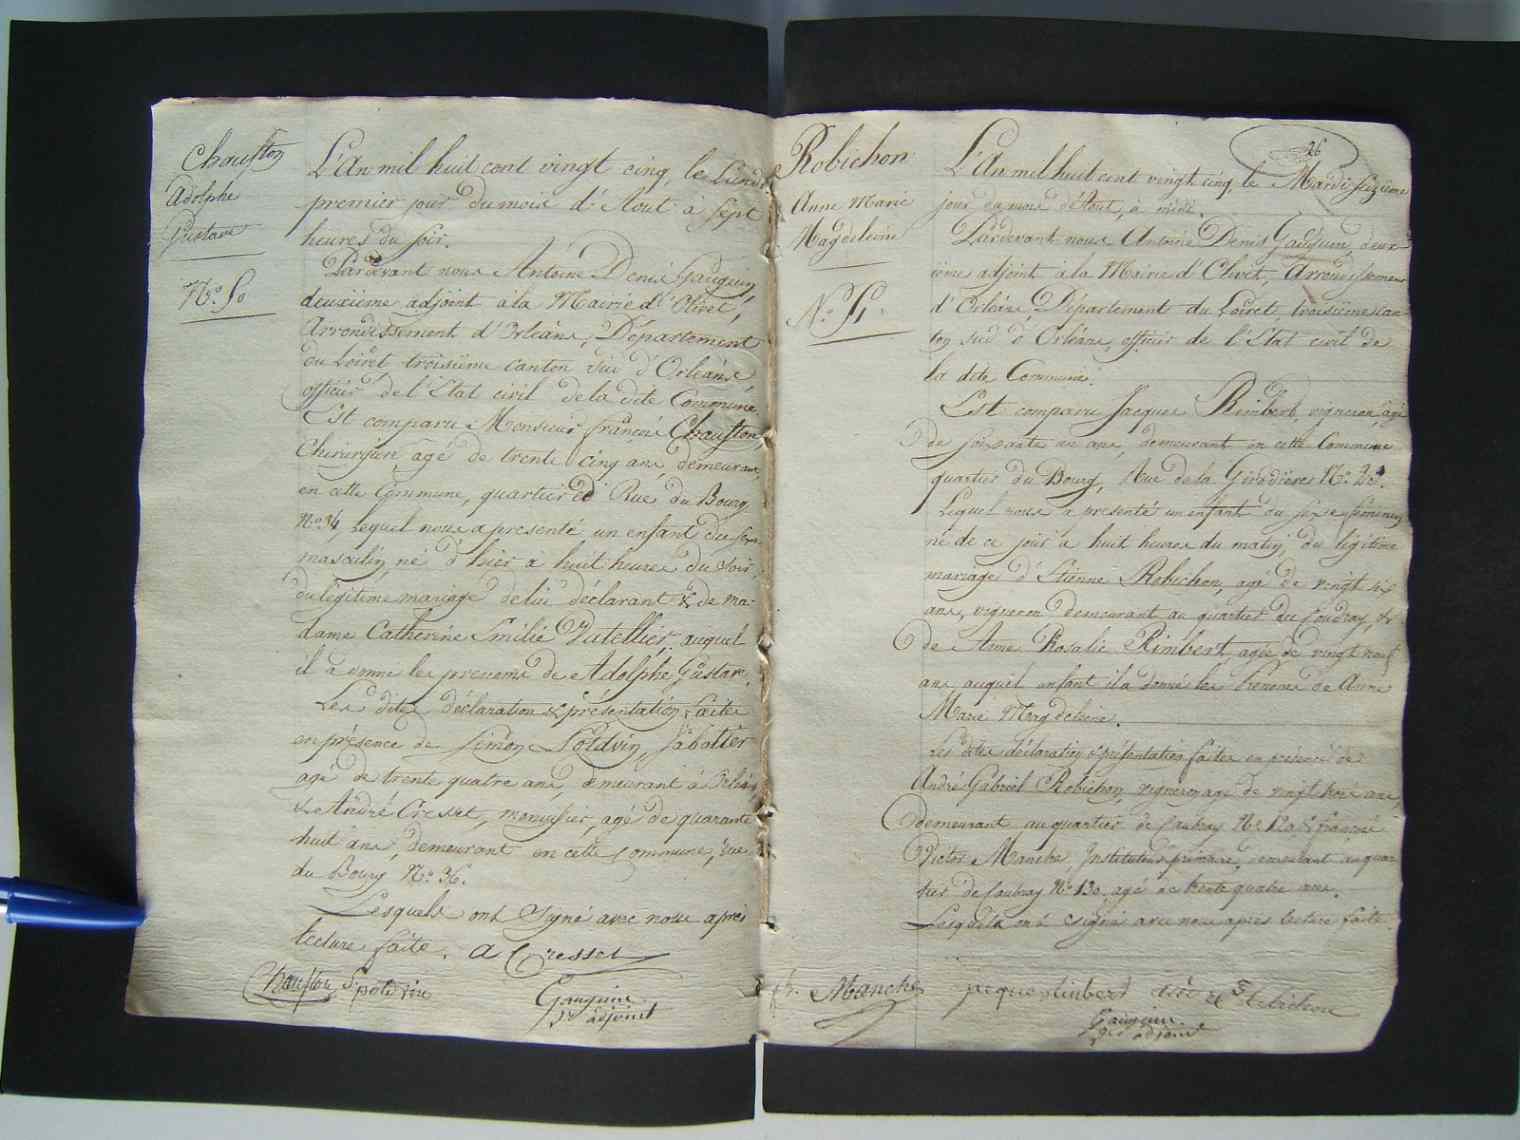 Chaufton
Adolphe
Gustave
No. 50
L'An mil huit cent vingt cinq, le Lundi
premier jour du mois d'Aout à sept
heures du soir.
Pardevant nous Antoine Denis Gauguin,
deuxième adjoint à la Mairie d'Olivet,
Arrondissement d'Orléans, Département
du Loiret troisième canton sud d'Orléans
officier de l'Etat civil de la dite Commune.
Est comparu Monsieur françois Chaufton,
Chirurgien, agé de trente cinq ans, demeurant
en cette Commune, quartier & Rue du Bourg
No. 34, Lequel nous a presenté un enfant du sexe
masculin, né d'hier à huit heures du soir,
du légitime mariage de lui déclarant & de ma-
dame Catherine Emilie Vatellier, auquel
il a donné les prenoms de Adolphe Gustave.
Les dites déclaration & présentation faites
en présence de Simon Poldvin, Sabotier
agé de trente quatre ans, demeurant à
& André Cresset, menuisier, agé de quarante
huit ans, demeurant en cette Commune, rue
du Bourg No. 36.
Lesquels ont signé avec nous après
lecture faite. A Cresset
Chaufton S poldvin
Gauguin
2e adjoint
26
Robichon
Anne Marie
Magdeleine
No. 51.
L'An mil huit cent vingt cinq le Mardi seizième
jour du mois d'Aout, à midi.
Pardevant nous Antoine Denis Gauguin, deux-
ième adjoint à la Mairie d'Olivet, Arrondissement
d'Orléans, Département du Loiret, troisième can-
ton sud d'Orléans, officier de l'Etat civil de
la dite Commune.
Est comparu Jacques Rimbert, vigneron, agé
de soixante un ans, demeurant en cette Commune
quartier du Bourg, Rue de la No. 23.
Lequel nous a presenté un enfant du sexe féminin
né de ce jour à huit heures du matin, du légitime
mariage d'Etienne Robichon, agé de vingt six
ans, vigneron demeurant au quartier du Coudray, &
de Anne Rosalie Rimbert, agée de vingt neuf
ans, auquel enfant il a donné les Prenoms de Anne
Marie Magdeleine.
Les dites déclaration & présentation faites en présence de
André Gabriel Robichon, vigneron agé de vingt trois ans,
demeurant au quartier de Caubray No. & françois
Victor Manche, Instituteur primaire, demeurant au quar-
tier de Caubray No. 130, agé de trente quatre ans.
Lesquels ont signé avec nous après lecture faite.
fr. Manche jacque rimbert
Gauguin
2e adjoint